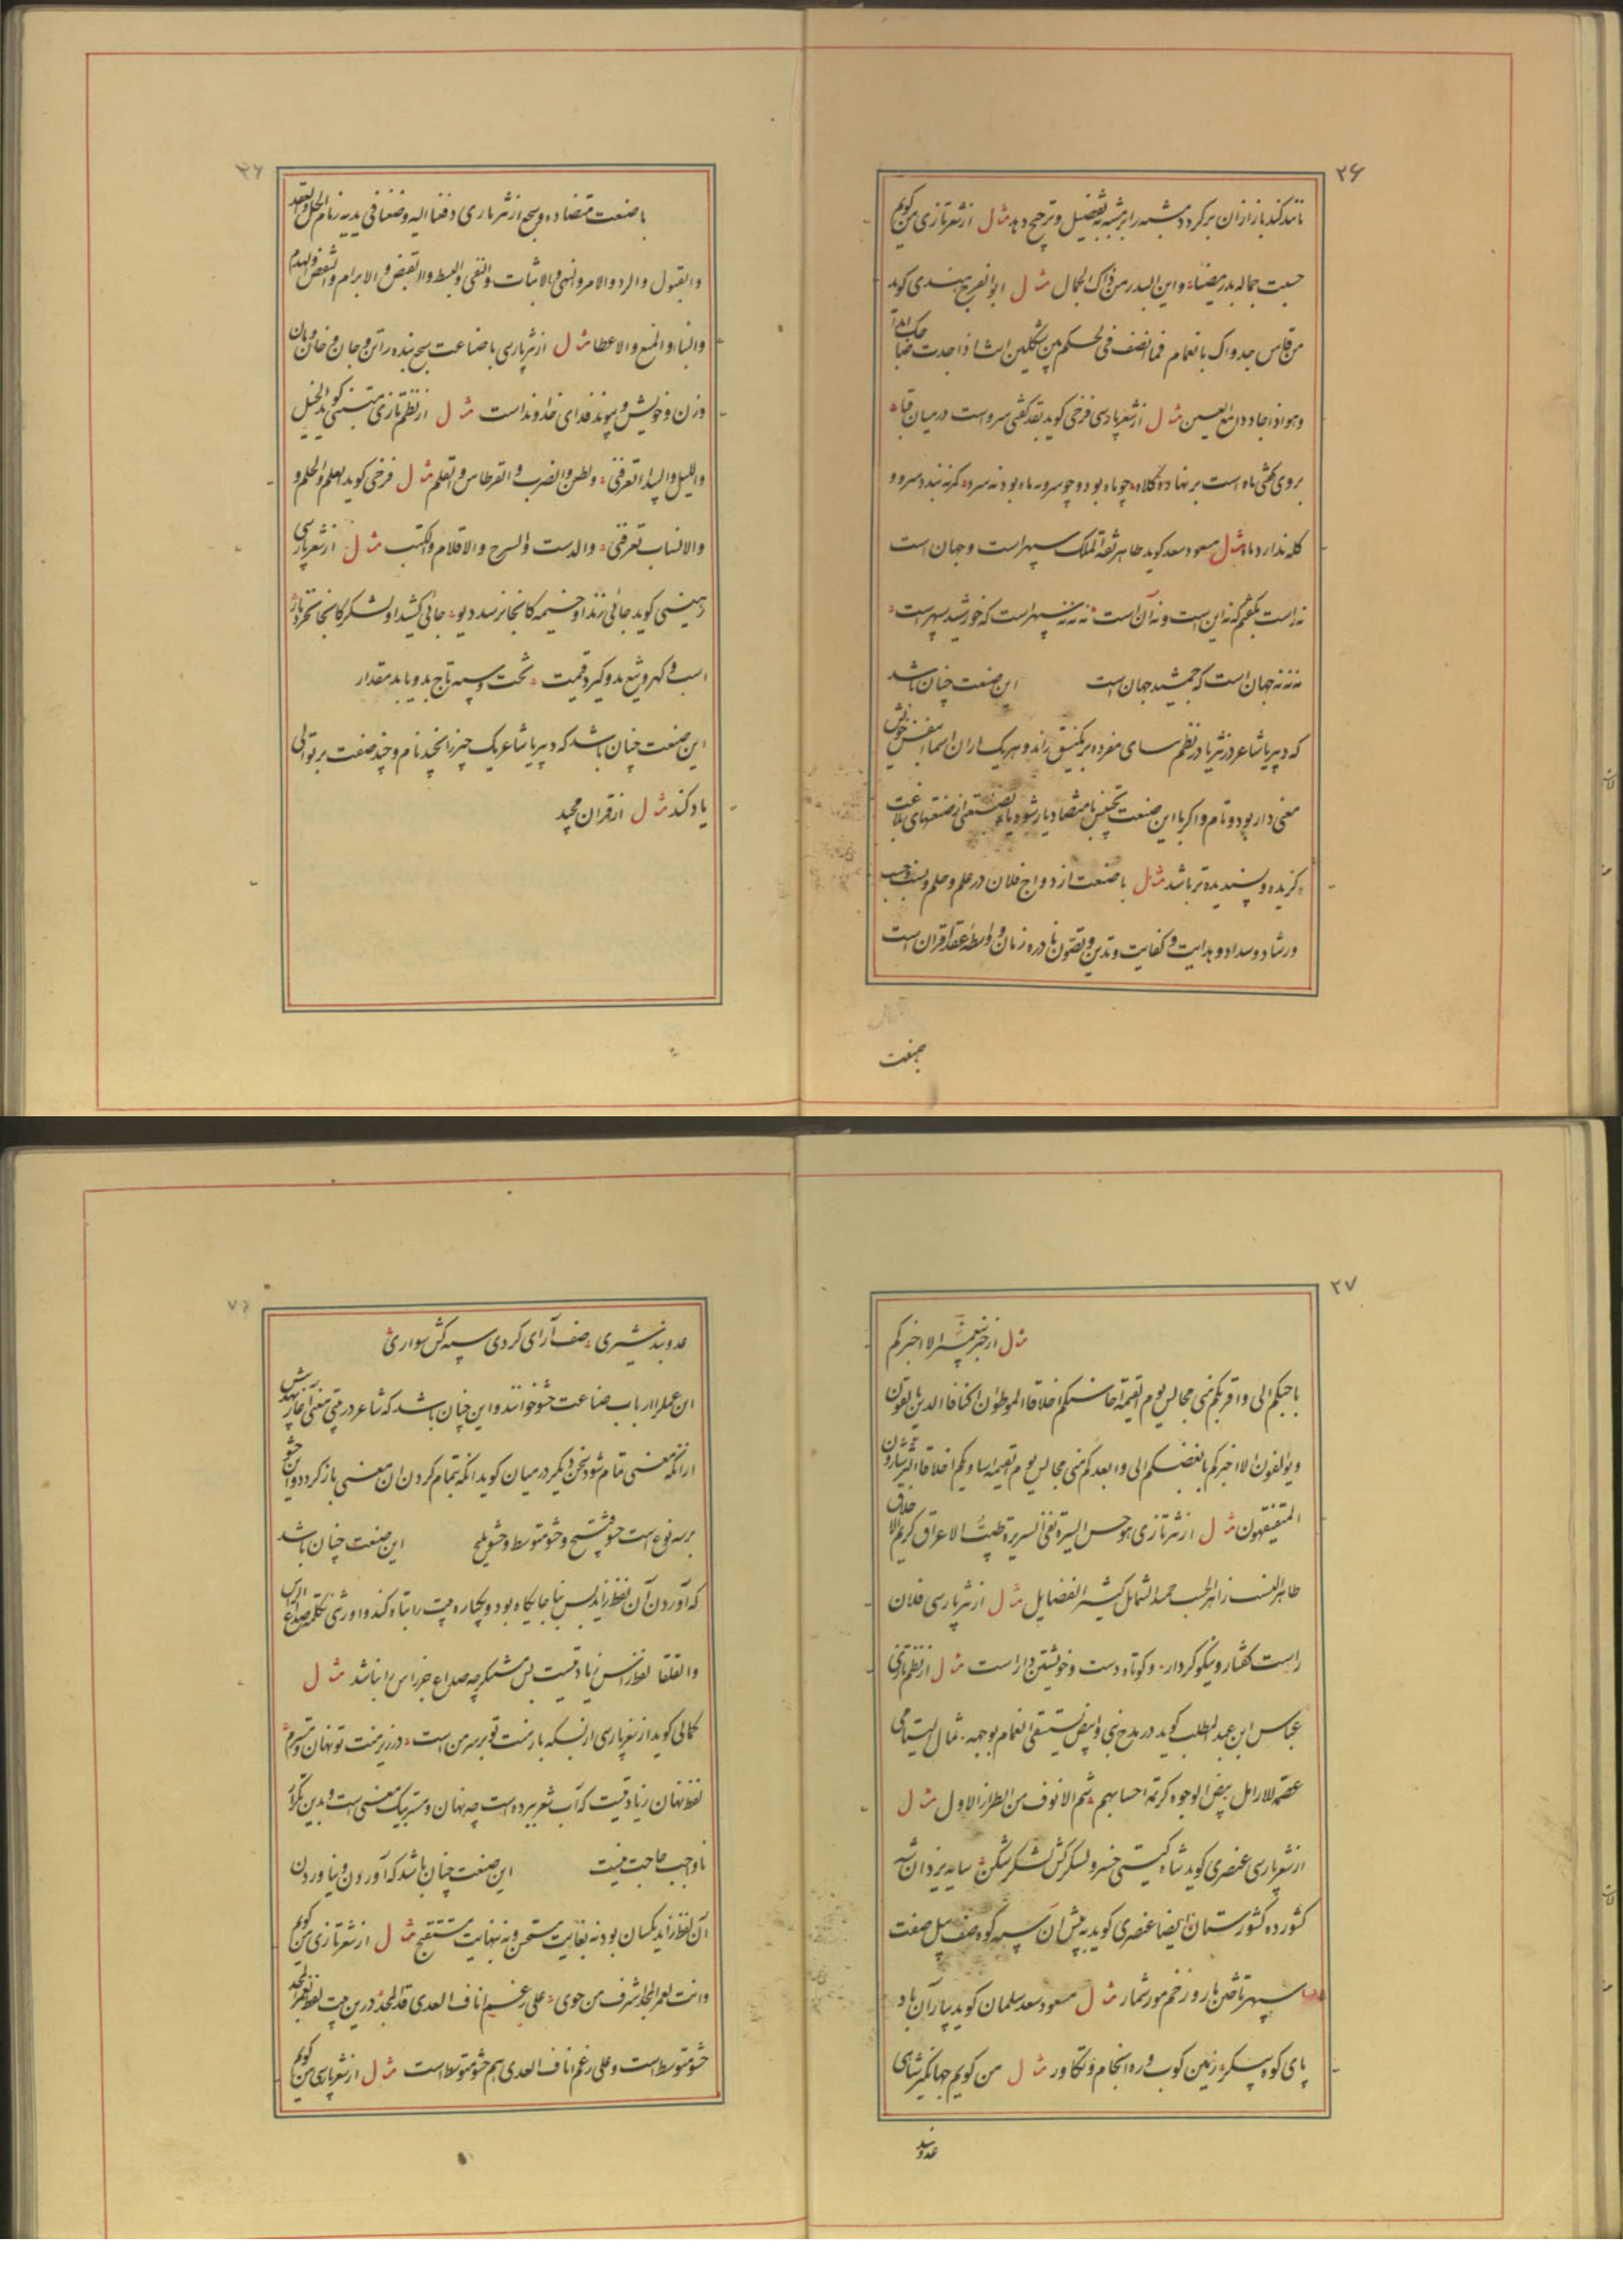 ۲۶
مانند کند باز ازان برگردد و مشبه را بر مشبه به تفضیل و ترجیح دهد مثال از شعر تازی من گویم
حسبت جماله بدر مضیئا؞ و این البدر من ذاک الجمال مثال ابوالفرج هندی گوید
من قاس جدواک بالغمام فما انصف فی الحکم بین شکلین انت اذا جدت ضاحک ابدا
وهو اذا جاد دامع العین مثال از شعر پارسی فرخی گوید بقد گفتی سرو است در میان قباه
بروی گفتی ماه است بر نهاده کلاه؞ چو ماه بود و چو سرو نه ماه بود نه سرو؞ کمر نبندد سرو و
کله ندارد ماه مثال مسعود سعد گوید طاهر ثقة الملک سپهر است و جهان است
نه راست نگفتم که نه این است و نه آن است؞ نه نه نه سپهر است که خورشید سپهر است؞
نه نه نه جهان است که جمشید جهان است این صنعت چنان باشد
که دبیر یا شاعر در نثر یا در نظم اسمای مفرده بر یک نسق راند و هر یک از ان اسما بنفس خویش
معنی دار بود و تام و اگر با این صنعت تجنیس یا متضاد یار شود یا صنعتی از صنعتهای بلاغت
گزیده و پسندیده تر باشد مثال با صنعت ازدواج فلان در علم و حلم و نسب و حسب
ورشاد و سداد و هدایت و کفایت و تدین و تصون نادره زمان و واسطه عقد اقران است
صنعت
با صنعت متضاده و سجع از نثر تازی دفعنا الیه وضعنا فی یدیه زمام الحل والعقد
والقبول والرد والامر والنهی والاثبات والنفی والبسط والقبض والابرام والنقض والهدم
والبناء والمنع والاعطا مثال از نثر پارسی با صناعت سجع بنده را تن و جان و خان و مان
وزن و خویش و پیوند فدای خداوند است مثال از نظم تازی متنبی گوید الخیل
واللیل والبیداء تعرفنی؞ والطعن والضرب والقرطاس والقلم مثال فرخی گوید العلم والحلم و
والانساب تعرفنی؞ والدست والسرج والاقلام والکتب مثال از شعر پارسی
گوید جائی زند او خیمه کانجا نرسد دیو؞ جائی کشد او لشکر کانجا نخزد مار؞
اسب و گهر و تیغ بدو گیرد قیمت؞ تخت و سپه و تاج بدو یابد مقدار
این صنعت چنان باشد که دبیر یا شاعر یک چیز را بچند نام و چند صفت بر توالی
یاد کند مثال از قران مجید
۲۷
مثال از خبر پیغمبر الا اخبرکم
باحبکم الی و اقربکم منی مجالس یوم القیمة احاسنکم اخلاقا الموطؤن اکنافا الذین یألفون
ویؤلفون الا اخبرکم بابغضکم الی وابعدکم منی مجالس یوم القیمة اساویکم اخلاقا الثرثارون
المتفیهقون مثال از نثر تازی هو حسن السیرة نقی السریرة طیب الاعراق کریم الاخلاق
طاهر النسب زاهر الحسب حمید الشمائل کثیر الفضایل مثال از نثر پارسی فلان
راست گفتار و نیکو کردار؞ و کوتاه دست و خویشتن دار است مثال از نظم تازی
عباس ابن عبد المطلب گوید در مدح نبی وابیض یستسقی الغمام بوجهه؞ ثمال الیتامی
عصمة للارامل بیض الوجوه کریمة احسابهم شم الانوف من الطراز الاول مثال
از شعر پارسی عنصری گوید شاه گیتی خسرو لشکرکش لشکر شکن سایه یزدان شه
کشور ده کشورستان؞ ایضا عنصری گوید به پیش ان سپه کوه صف پیل صفت
سپهر تاختن مار و زخم مور شمار مثال مسعود سعد سلمان گوید بیار آن باد
پای کوه پیکر؞ زمین کوب و ره انجام و تکاور مثال من گویم جهانگیر شاهی
عدوبند
عدوبند شیری؞ صف آرای گردی سپه کش سواری
این عمل را ارباب صناعت حشو خوانند و این چنان باشد که شاعر در بیتی معنی آغاز نهد پیش
از انکه معنی تمام شود سخن دیگر در میان گوید انگه بتمام کردن ان معنی باز گردد و این حشو
بر سه نوع است حشو قبیح و حشو متوسط و حشو ملیح این صنعت چنان باشد
که آوردن آن لفظ زاید بس نابجایگاه بود و یکباره بیت را تباه کند
مثال
کمالی گوید از شعر پارسی از بسکه بار منت تو بر سر من است؞ در زیر منت تو نهان و مسترم؞
لفظ نهان زیادتیست که آب شعر ببرده است چه نهان و مستر بیک معنی است و بدین تکرار
ناواجب حاجت نیست این صنعت چنان باشد که آوردن و نیاوردن
آن لفظ زاید یکسان بود نه بغایت مستحسن و نه بنهایت مستقبح مثال از شعر تازی من گویم
وانت لعمر المجد اشرف من حوی؞ علی رغم اناف العدی قد المجد؞ درین بیت لفظ لعمر المجد
حشو متوسط است و علی رغم اناف العدی هم حشو متوسط است مثال از شعر پارسی من گویم